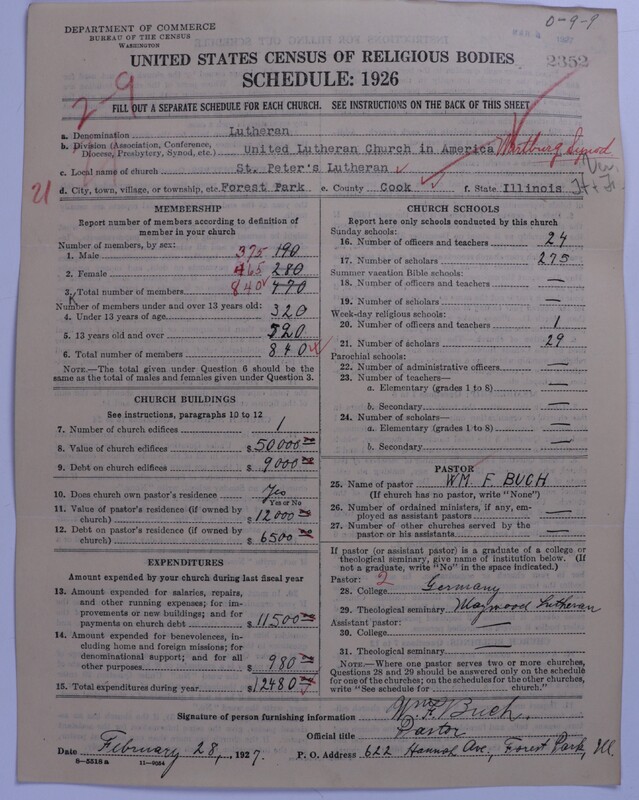 0-9-9
DEPARTMENT OF COMMERCE
BUREAU OF THE CENSUS
WASHINGTON
UNITED STATES CENSUS OF RELIGIOUS BODIES
2352
SCHEDULE: 1926
2-9
FILL OUT A SEPARATE SCHEDULE FOR EACH CHURCH. SEE INSTRUCTIONS ON THE BACK OF THIS SHEET
a. Denomination Lutheran
b. Division (Association, Conference, Diocese, Presbytery, Synod, etc.) United Lutheran Church in America Wartburg Synod
c. Local name of church St. Peter's Lutheran
21
d. City, town, village, or township, etc. Forest Park e. County Cook f. State Illinois
MEMBERSHIP
Report number of members according to definition of
member in your church
Number of members, by sex:
1. Male 375 190
2. Female 465 280
3. Total number of members 840 470
Number of members under and over 13 years old:
4. Under 13 years of age 320
5. 13 years old and over 520
6. Total number of members 840
NOTE.—The total given under Question 6 should be
the same as the total of males and females given under Question 3.
CHURCH BUILDINGS
See instructions, paragraphs 10 to 12
7. Number of church edifices 1
8. Value of church edifices $ 50000 00
9. Debt on church edifices $ 9000 00
10. Does church own pastor's residence Yes
Yes or No
11. Value of pastor's residence (if owned by
church) $ 12000 00
12. Debt on pastor's residence (if owned by
church) $ 6500 00
EXPENDITURES
Amount expended by your church during last fiscal year
13. Amount expended for salaries, repairs,
and other running expenses; for im-
provements or new buildings; and for
payments on church debt $ 11500
14. Amount expended for benevolences, in-
cluding home and foreign missions; for
denominational support; and for all
other purposes $ 980
15. Total expenditures during year $ 12480
CHURCH SCHOOLS
Report here only schools conducted by this church
Sunday schools:
16. Number of officers and teachers 24
17. Number of scholars 275
Summer vacation Bible schools:
18. Number of officers and teachers —
19. Number of scholars —
Week-day religious schools:
20. Number of officers and teachers 1
21. Number of scholars 29
Parochial schools:
22. Number of administrative officers —
23. Number of teachers—
a. Elementary (grades 1 to 8) —
b. Secondary —
24. Number of scholars—
a. Elementary (grades 1 to 8) —
b. Secondary —
PASTOR
25. Name of pastor WM. F. BUCH
(If church has no pastor, write "None")
26. Number of ordained ministers, if any, em-
ployed as assistant pastors —
27. Number of other churches served by the
pastor or his assistants —
If pastor (or assistant pastor) is a graduate of a college or
theological seminary, give name of institution below. (If
not a graduate, write "No" in the space indicated.)
Pastor: 2
28. College Germany
29. Theological seminary Maywood Lutheran
Assistant pastor:
30. College —
31. Theological seminary —
NOTE.—Where one pastor serves two or more churches,
Questions 28 and 29 should be answered only on the schedule
for one of the churches; on the schedules for the other churches,
write "See schedule for church."
Signature of person furnishing information Wm F. Buch.
Official title Pastor
Date February 28, 1927. P. O. Address 622 Hannah Ave, Forest Park, Ill.
8—5518a 11—9084